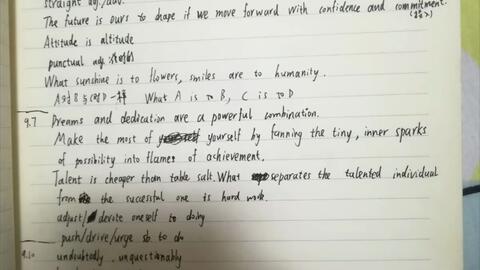 straight adj./adv.
The future is ours to shape if we move forward with confidence and commitment.
Attitude is altitude
punctual adj.
What sunshine is to flowers, smiles are to humanity.
A对B与C对D一样 What A is to B, C is to D
9.7 Dreams and dedication are a powerful combination.
Make the most of yourself by fanning the tiny, inner sparks
of possibility into flames of achievement.
Talent is cheaper than table salt. What separates the talented individual
from the successful one is hard work.
adjust/ devote oneself to doing
push/drive/urge sb. to do
9.10 undoubtedly. unquestionably